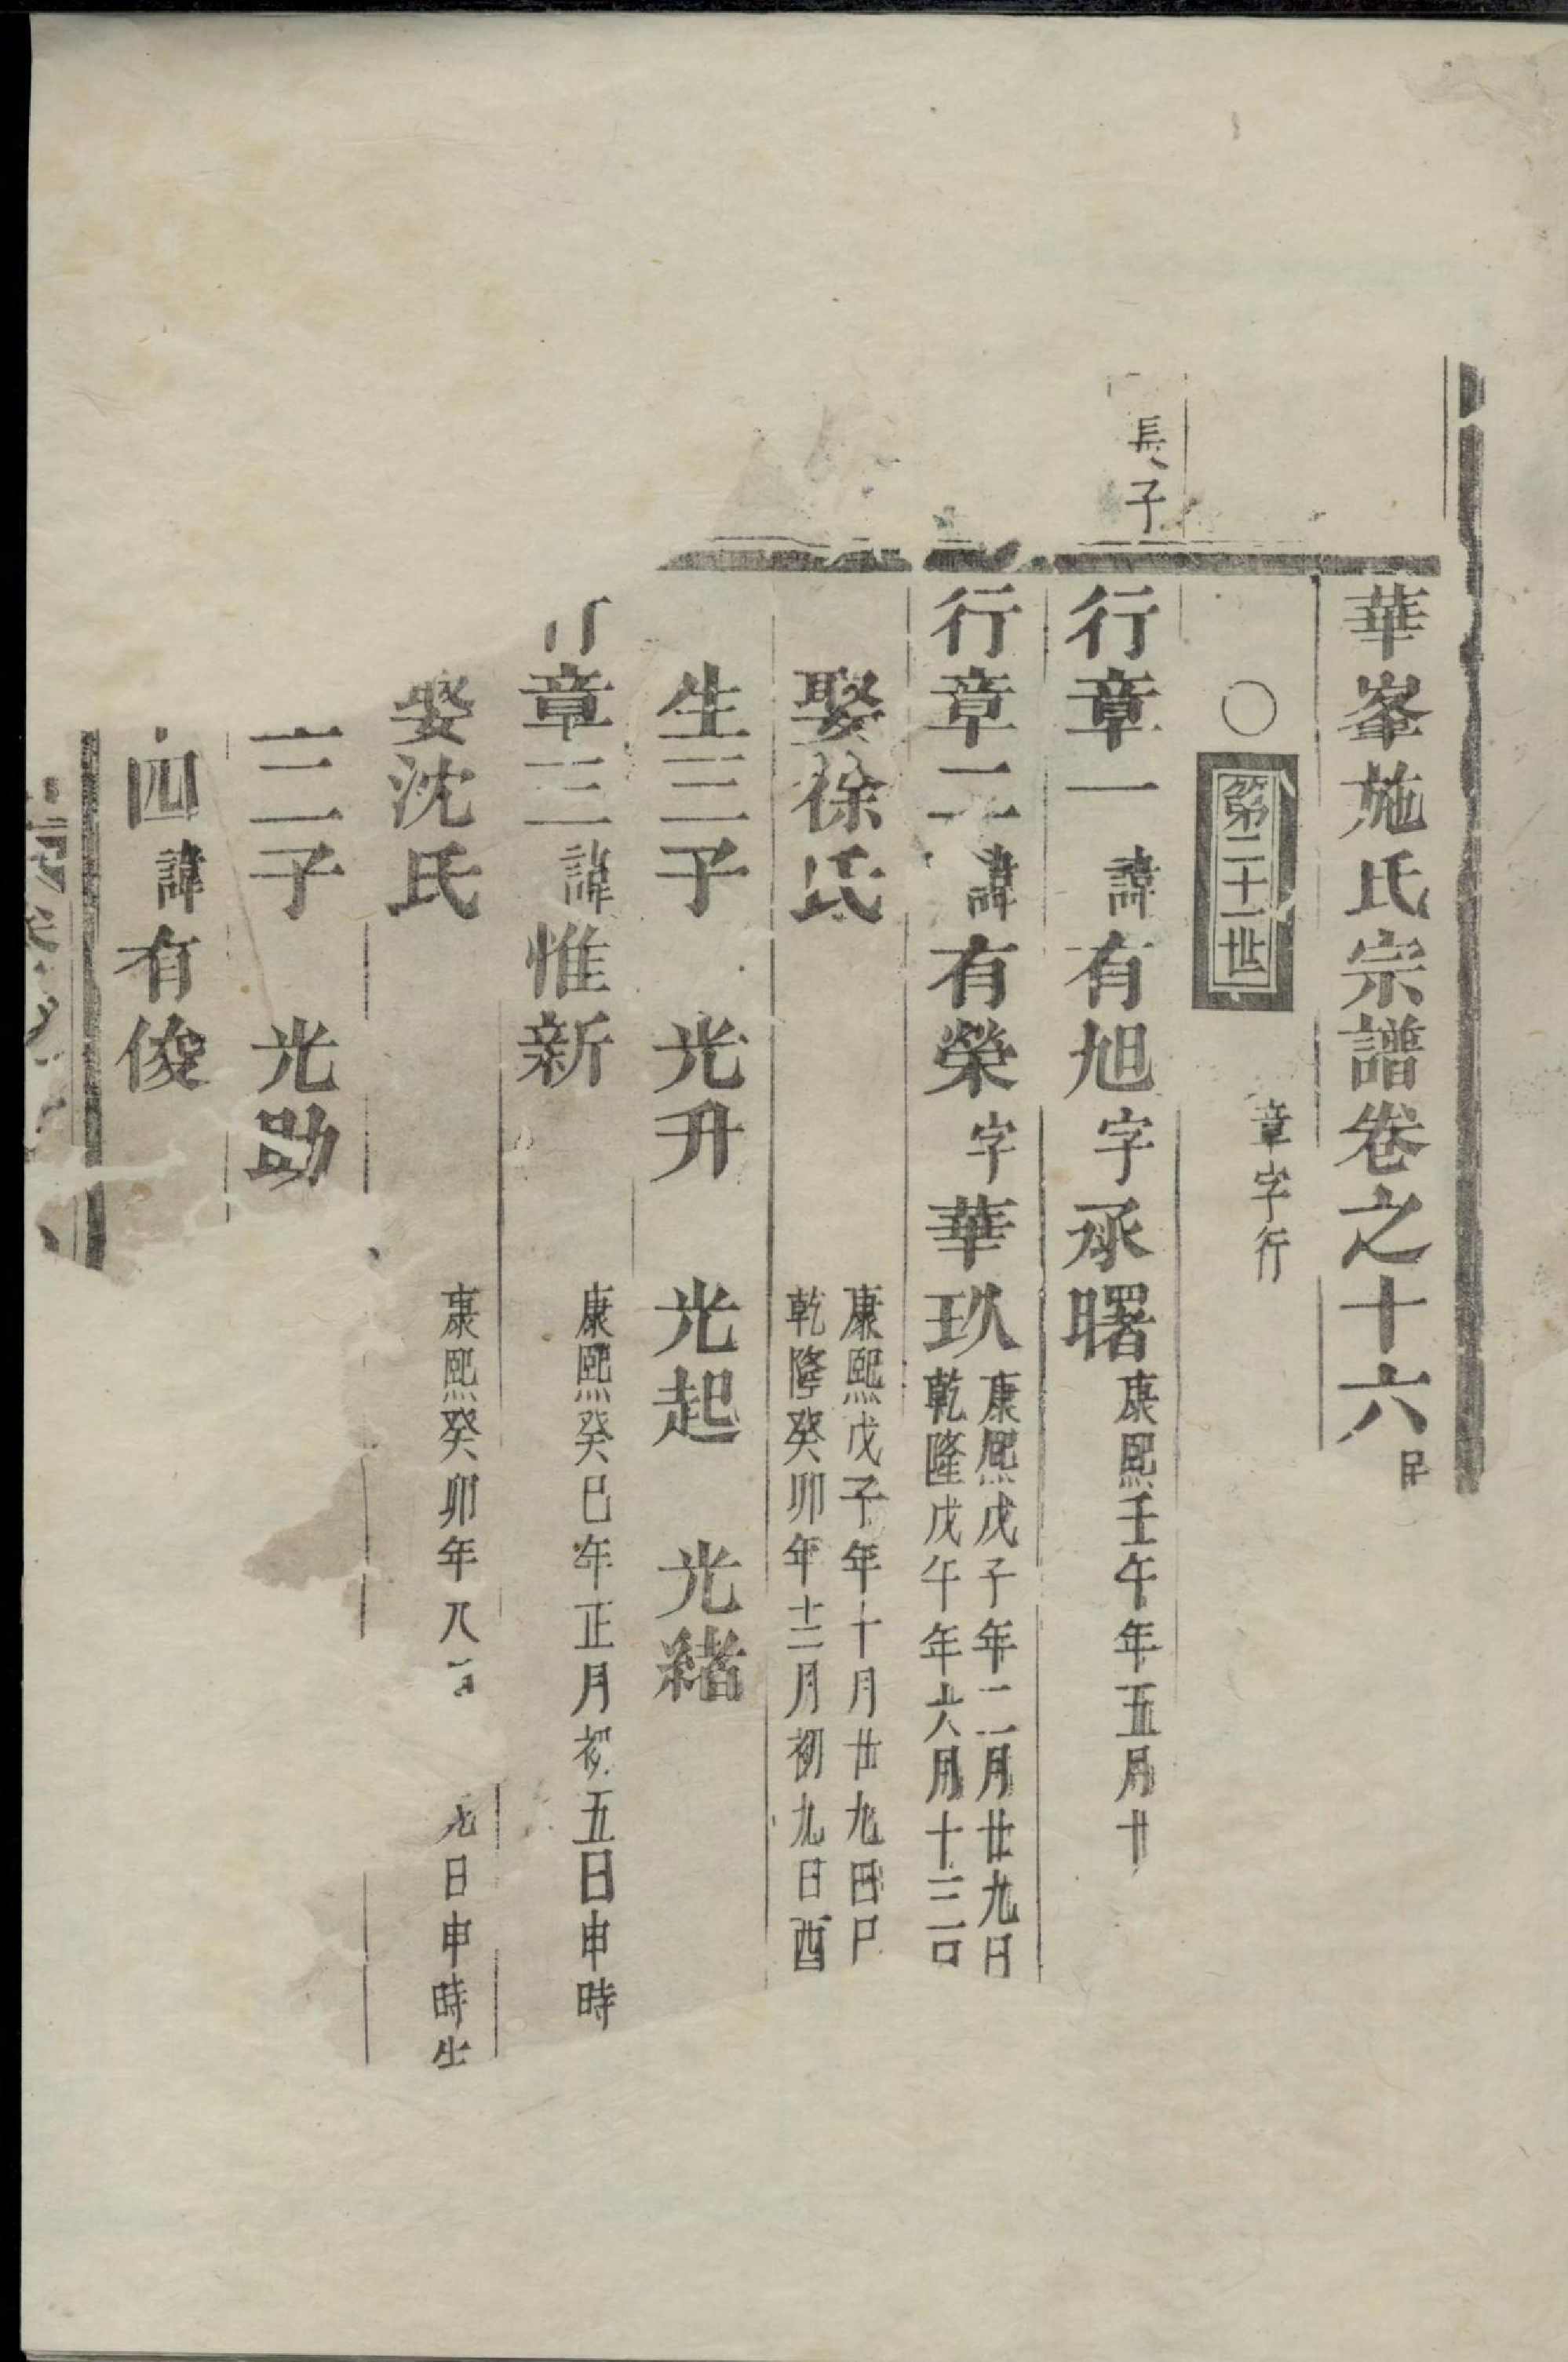 華峯施氏宗譜卷之十六
〇第二十一世 章字行
長子
行章一 諱有旭字承曙 康熙壬午年五月廿
行章二 諱有榮字華玖 康熙戊子年二月廿九日
乾隆戊午年六月十三
娶徐氏 康熙戊子年十月廿九日
乾隆癸卯年十二月初九日酉
生三子 光升 光起 光緒
章三 諱惟新 康熙癸巳年正月初五日申時
娶沈氏 康熙癸卯年八 九日申時生
二子 光勛
四 諱有俊